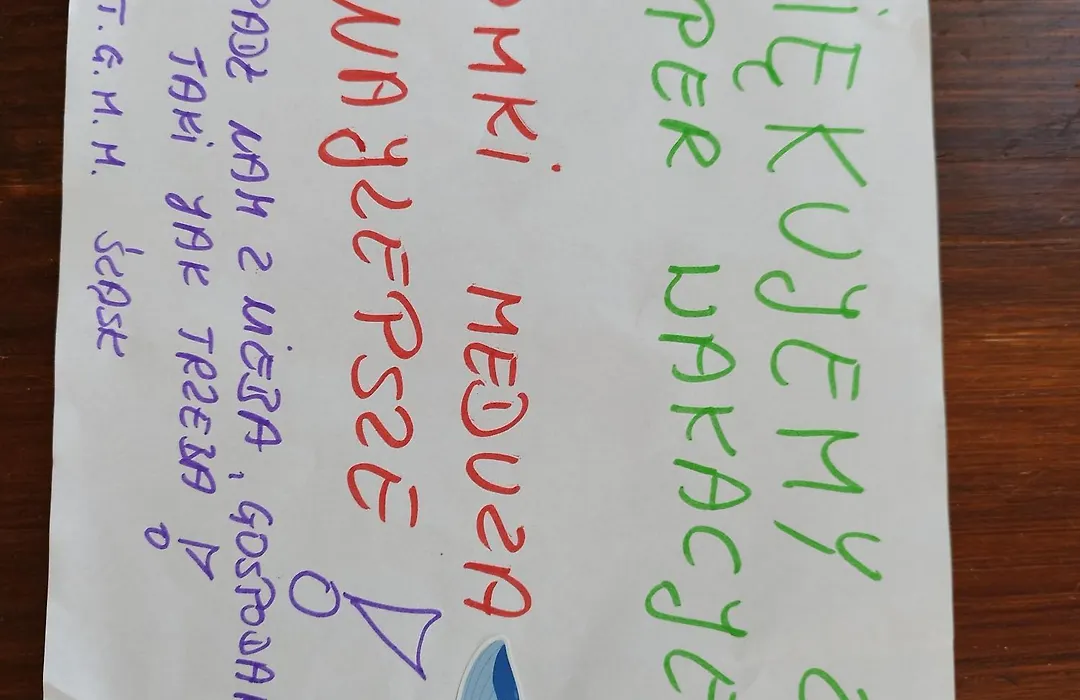 IĘKUJEMY
PER WAKACJE
OMKI MEDUZA
NAJLEPSZE !
PADŁ NAM Z NIEBA, GOSPODA
TAKI JAK TRZEBA !
T.G.M.M. ŚLĄSK